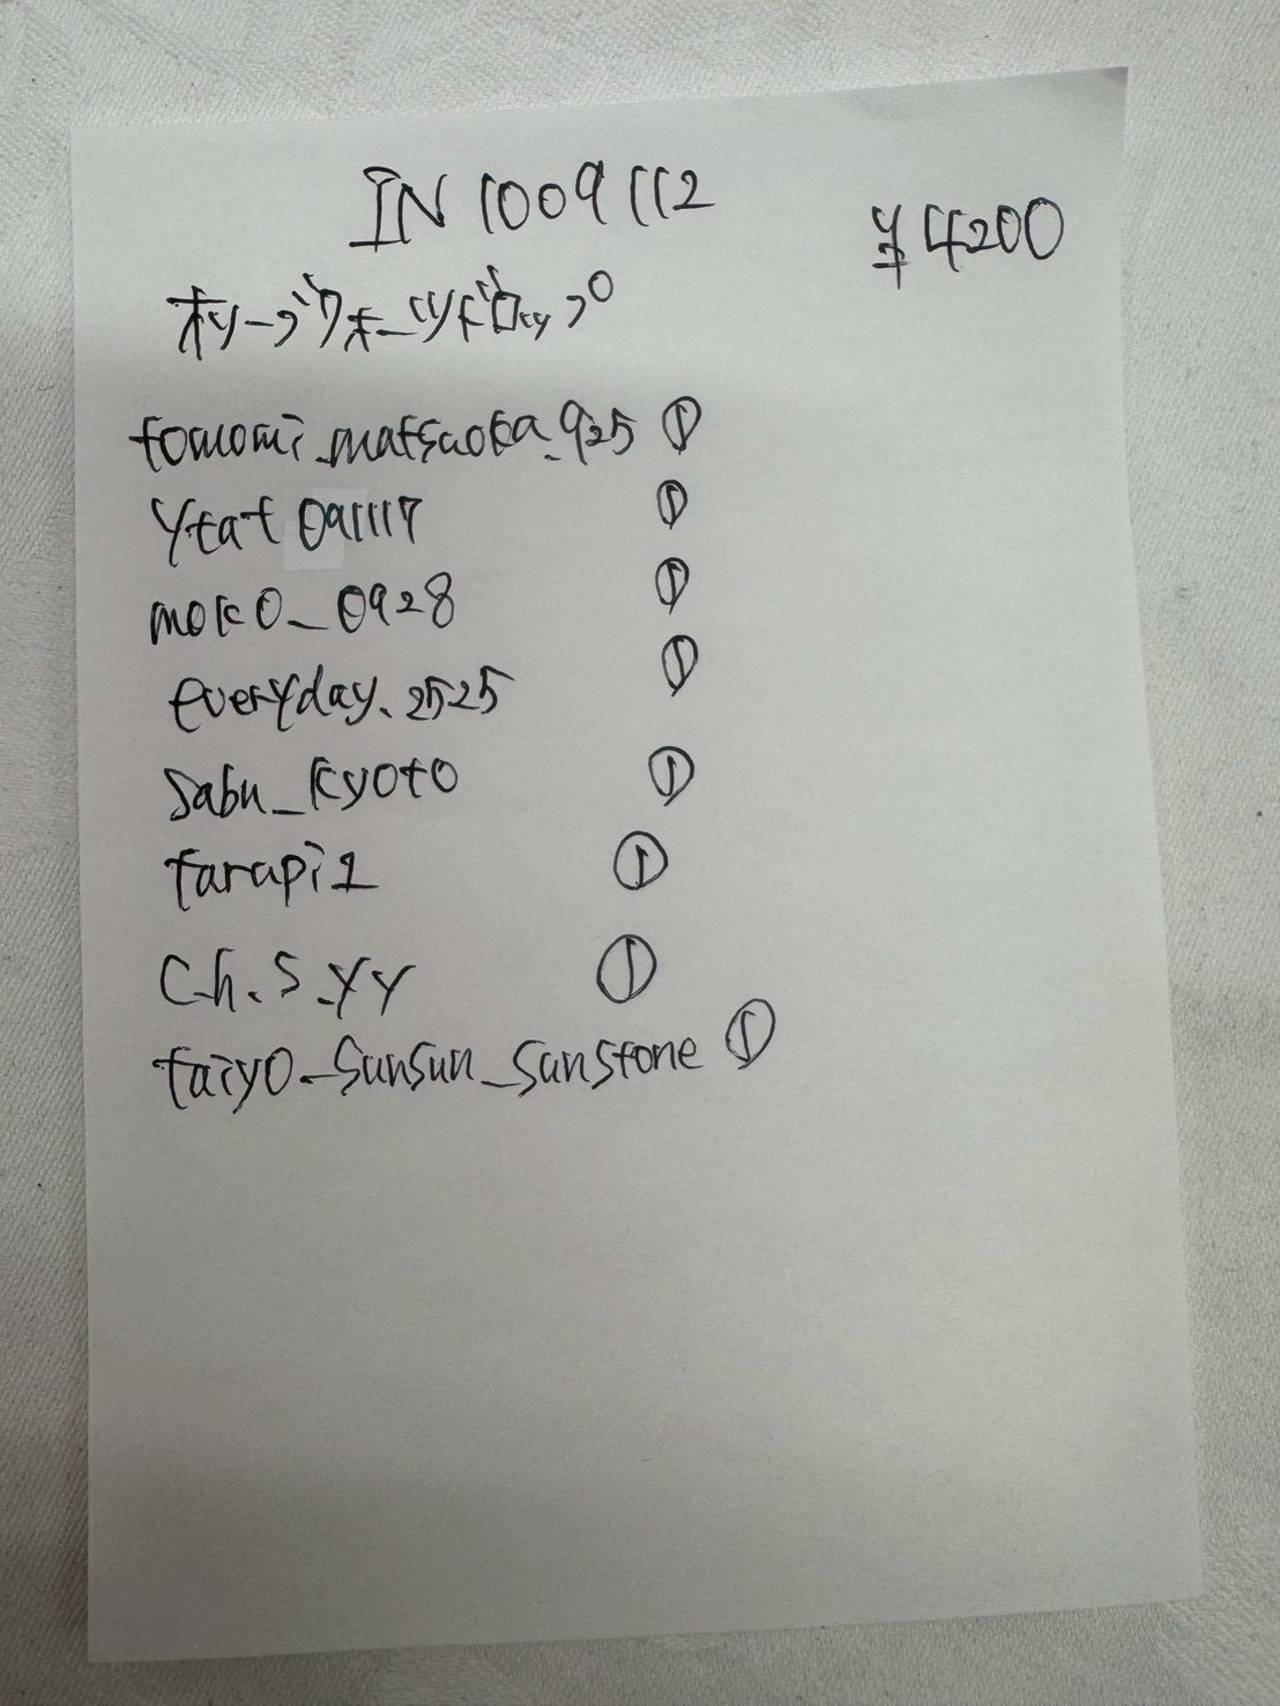 IN 1009112
¥4200
オリーブクォーツドロップ
tomomi_matsuoka_925 ①
ytat091117 ①
moko_0928 ①
everyday.2525 ①
sabu_kyoto ①
tarapi1 ①
c.h.s.yy ①
taiyo_sunsun_sunstone ①